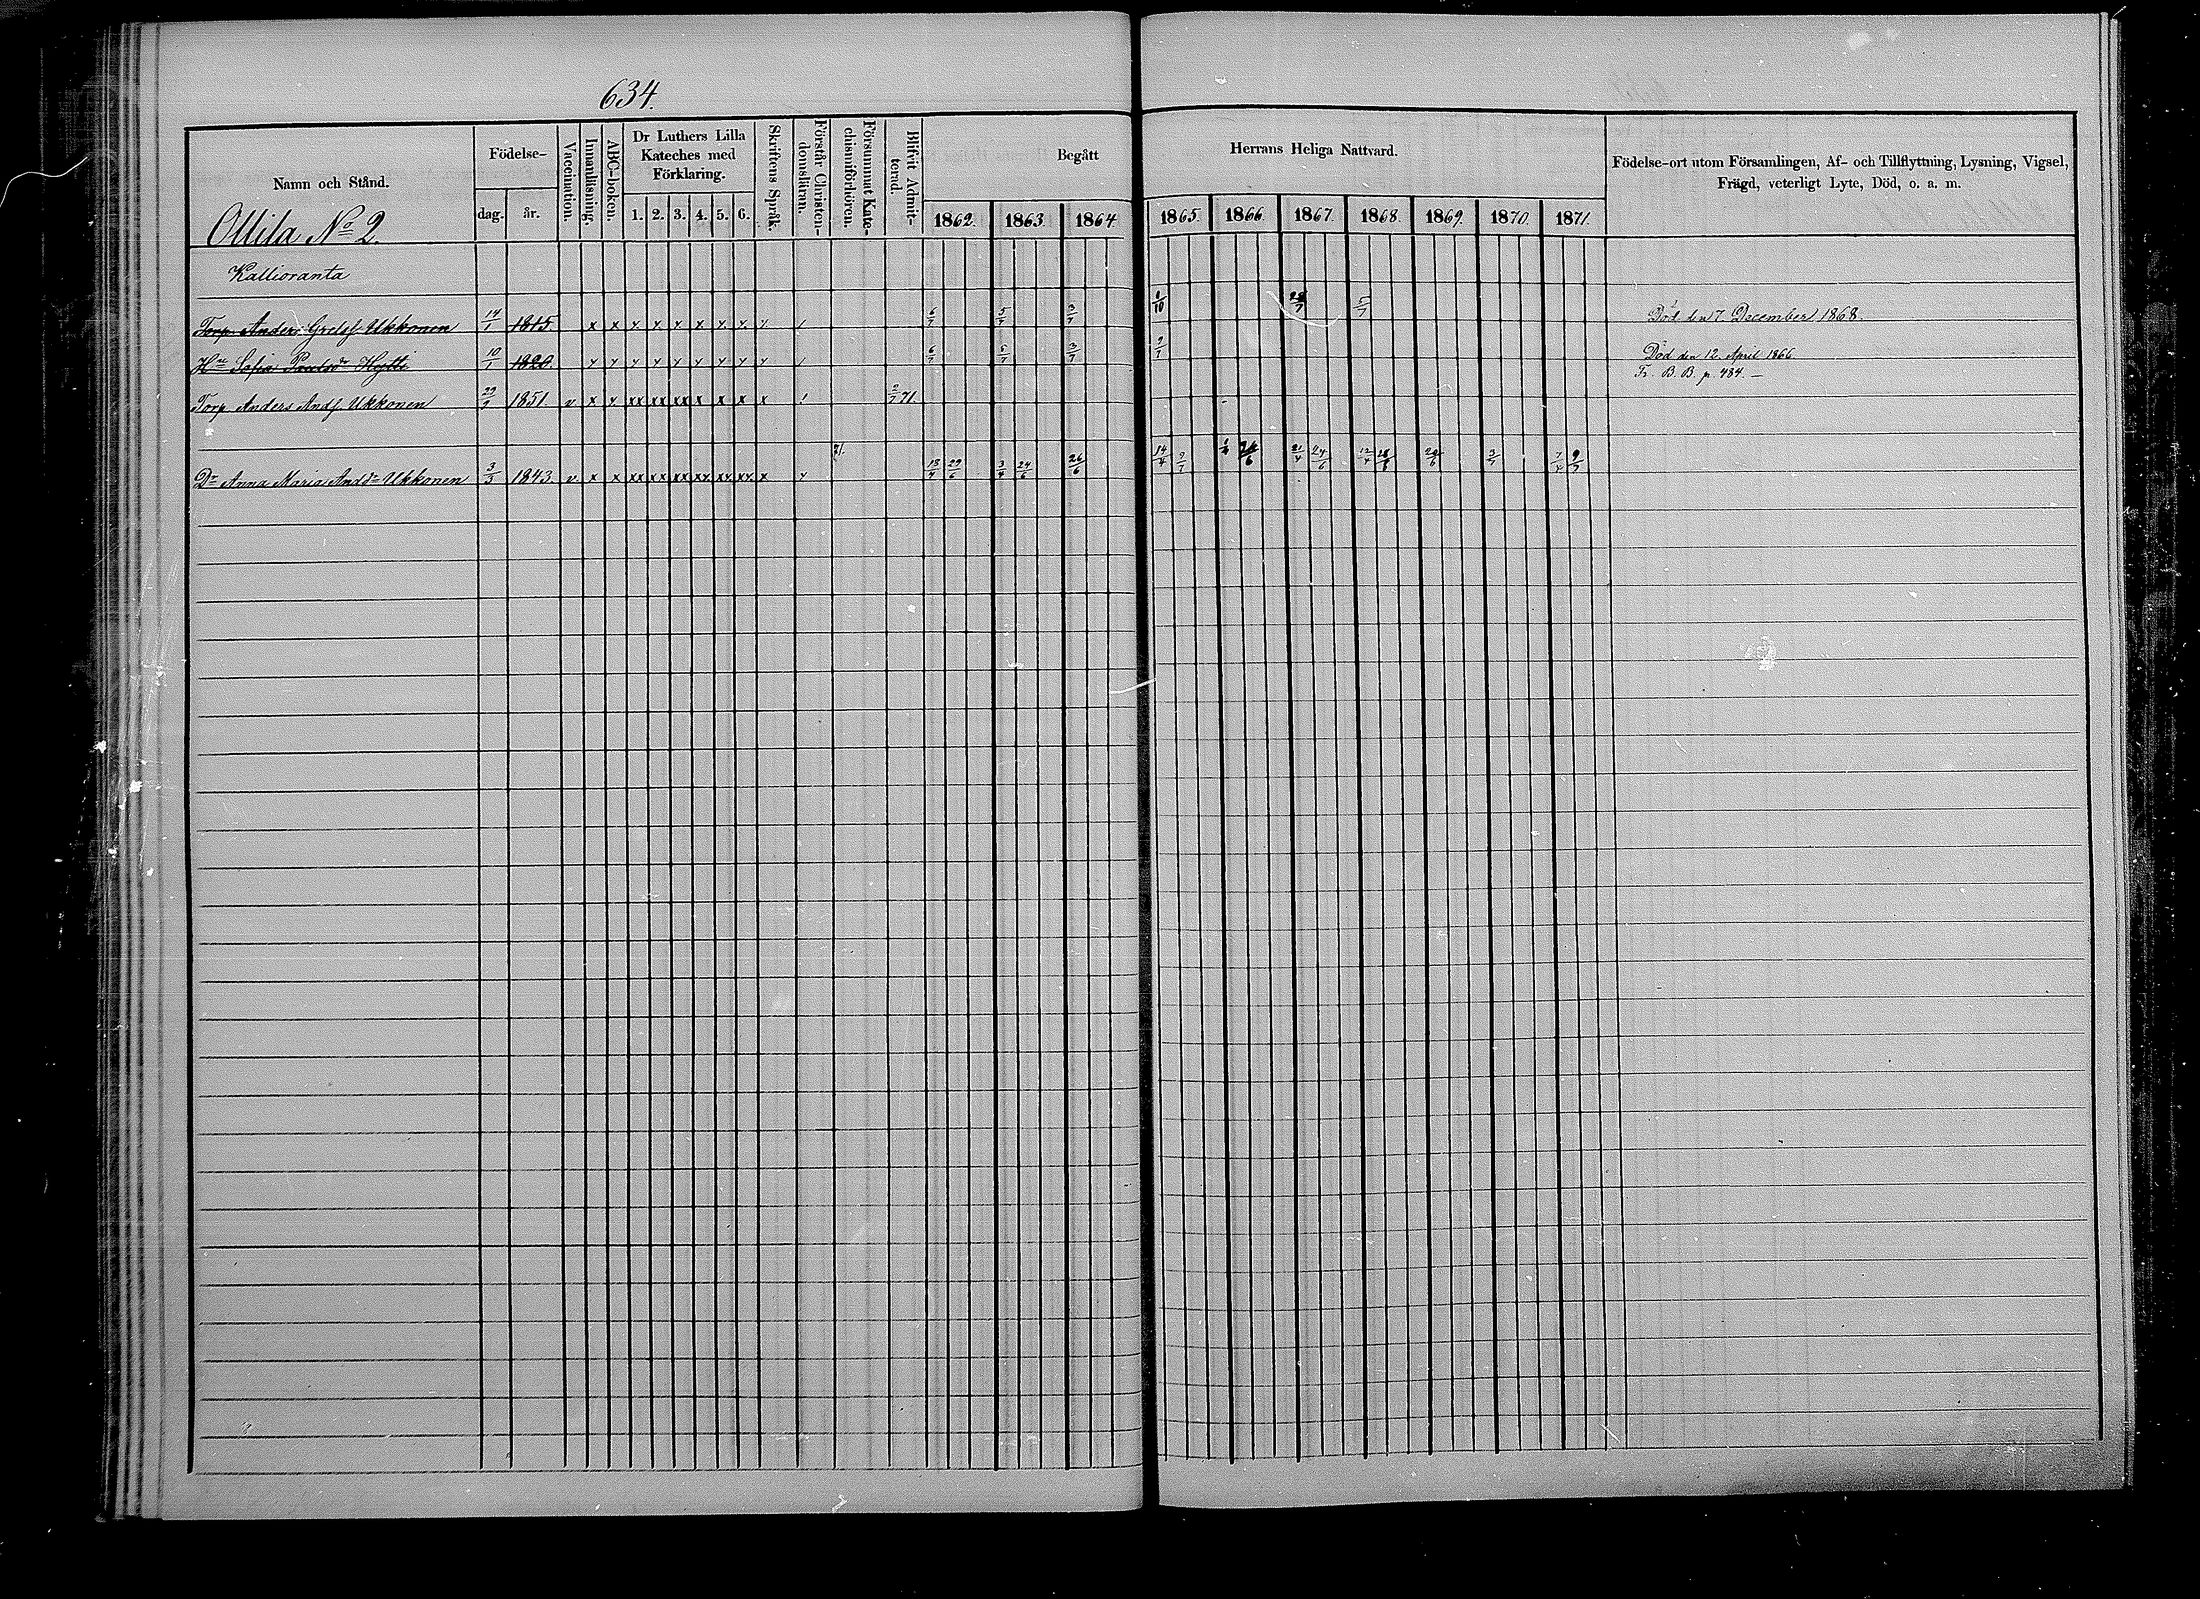 634.
Namn och Stånd.
Födelse-
dag. år.
Vaccination.
Innanläsning.
ABC-boken.
Dr Luthers Lilla
Kateches med
Förklaring.
1. 2. 3. 4. 5. 6.
Skriftens Språk.
Förstår Christen-
domslären.
Försummat Kate-
chismiförhören.
Blifvit Admit-
terad.
Begått
Herrans Heliga Nattvard.
1862. 1863. 1864. 1865. 1866. 1867. 1868. 1869. 1870. 1871.
Födelse-ort utom Församlingen, Af- och Tillflyttning, Lysning, Vigsel,
Frägd, veterligt Lyte, Död, o. a. m.
Ollila No 2.
Kallioranta
Torp. Anders Grelsf Ukkonen 14/1 1815 x x x x x x x x x / 6/7 5/7 3/7 1/10 5/7 Död den 7 December 1868.
Hu Sofia Paulsdr Hytti 10/1 1820. x x x x x x x x x / 6/7 5/7 3/7 9/7 Död den 12 April 1866
Fr. B. B. p. 484. —
Torp Anders Andf Ukkonen 1851. v x x xx xx xx x x x x / 2/7 71.
Dr Anna Maria Andsdr Ukkonen 3/3 1843. v x x xx xx xx xx xx xx x x 29/6 3/4 24/6 26/6 9/7 21/4 24/6 12/4 3/7 7/4 9/7